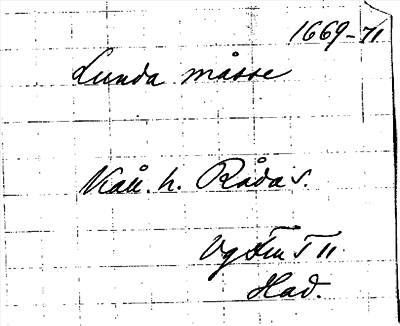 1669-71
Lunda mosse
Kåll. h. Råda s.
Vg Fm T 11
Had.